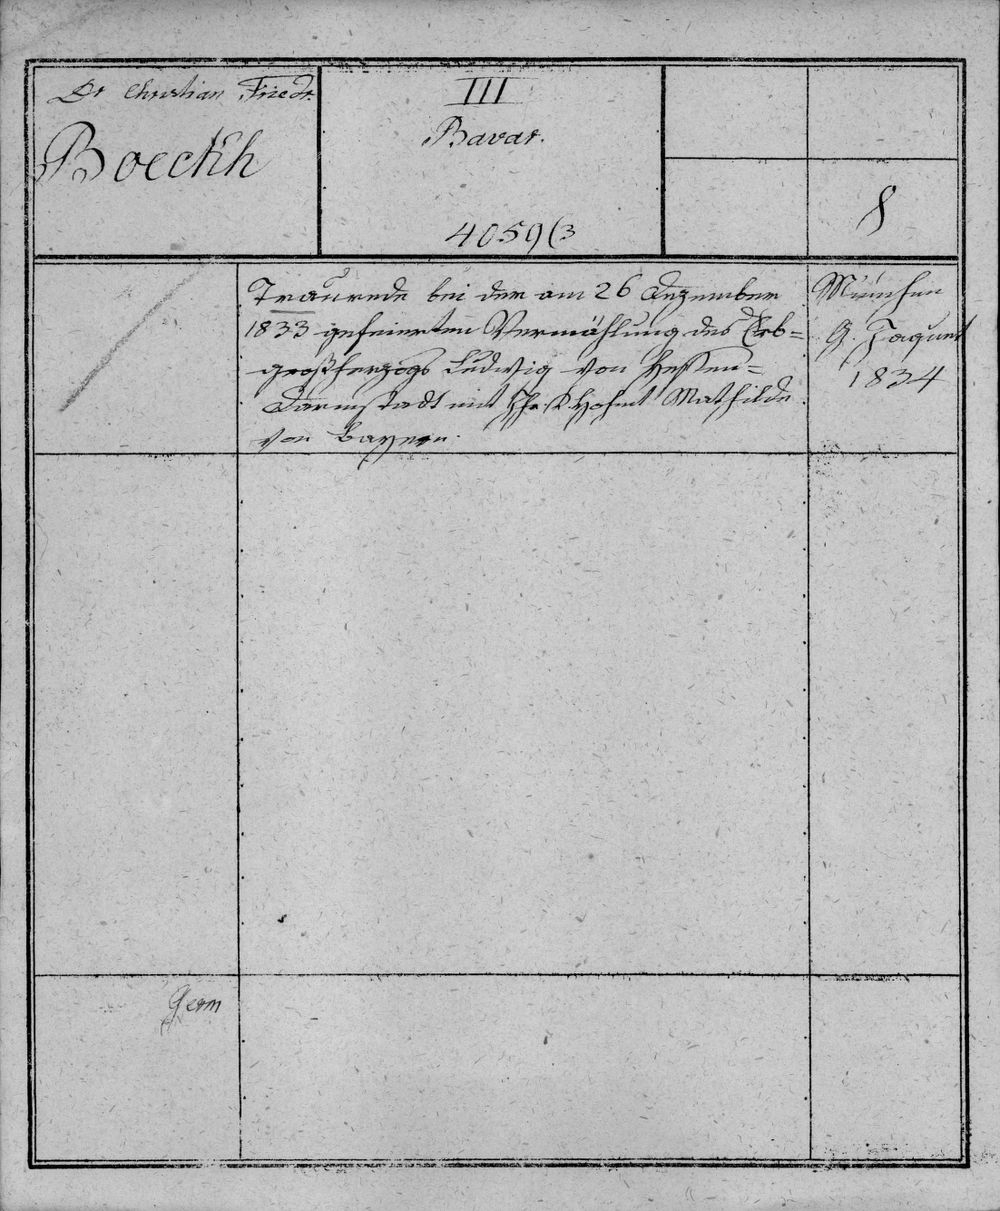 Dr Christian Friedr.
Boeckh
III
Bavar.
4059(3
8
Traurede bei der am 26 Dezember
1833 gefeierten Vermählung des Erb=
großherzogs Ludwig von Hessen=
Darmstadt mit Ihr. K. Hoheit Mathilde
von Bayern.
München
G. Jaquet
1834
Germ